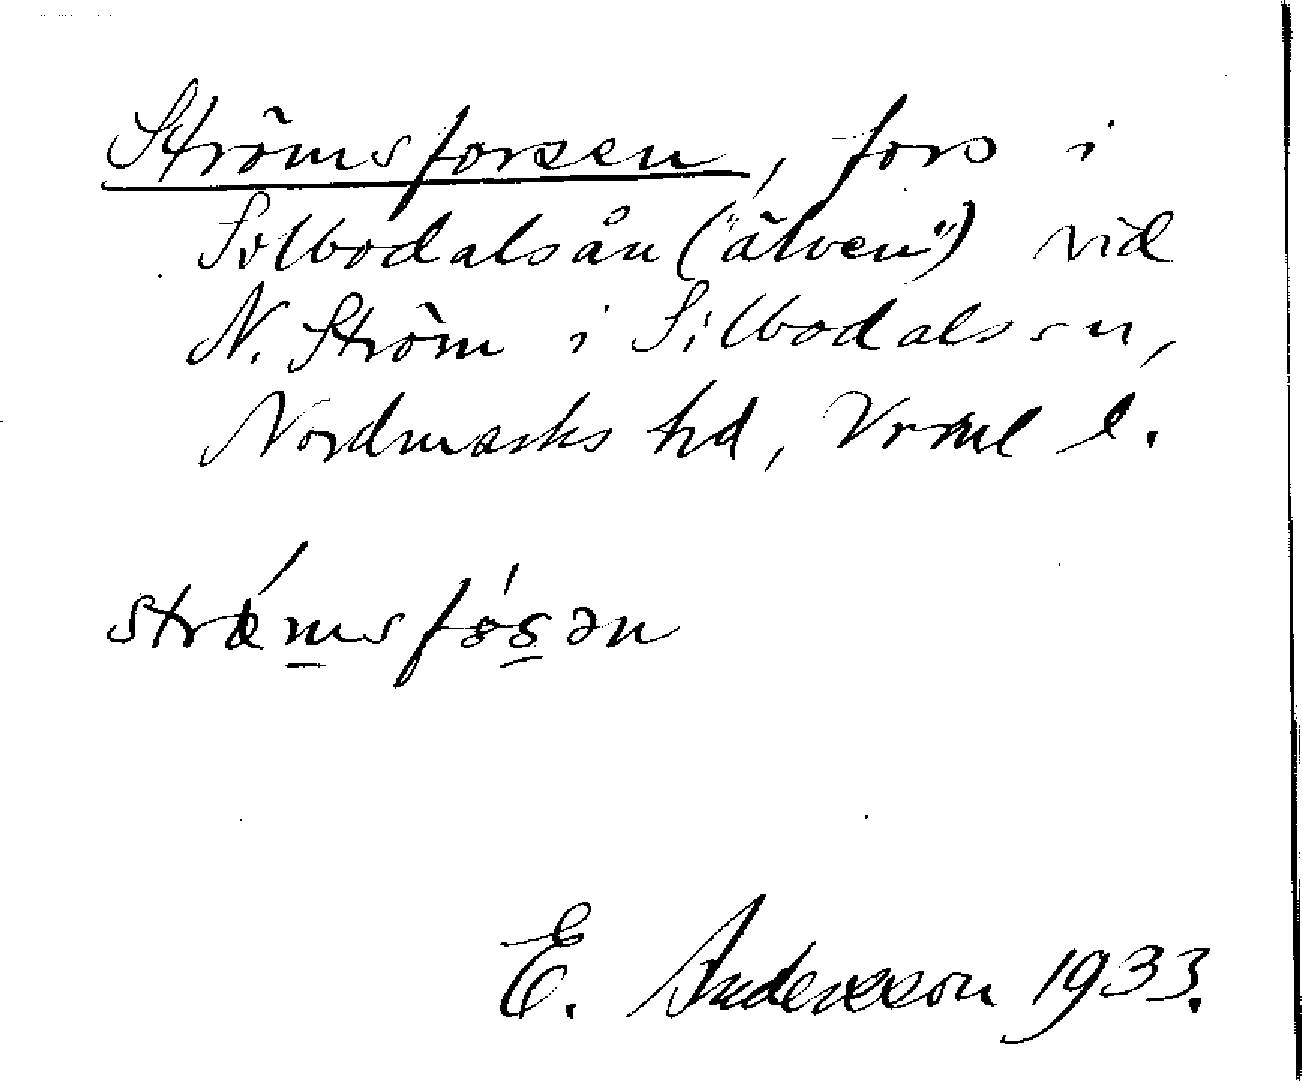 Strömsforsen, fors i
Silbodalsån ("älven") vid
N. Ström i Silbodals sn,
Nordmarks hd, Vrml l.
E. Andersson 1933.